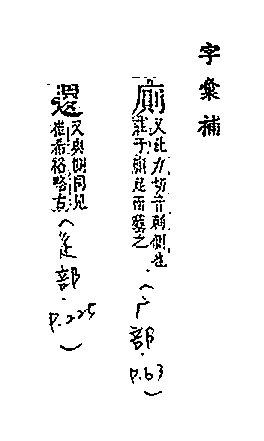 字彙補
廁
又 力切音 側也
莊子廁足而墊之
（广部．
P.63）
又與側同見
崔希裕略古
（辵部．
P.225）